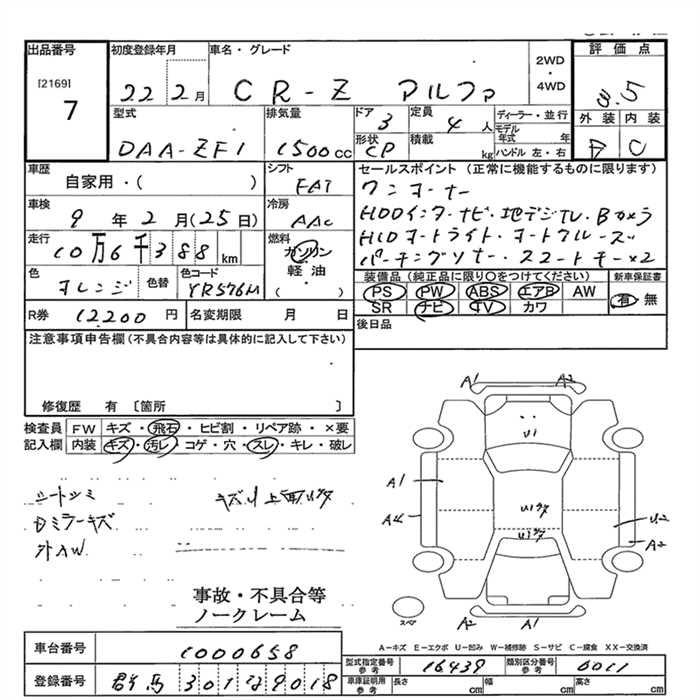 出品番号
[2169]
7
初度登録年月
22 2月
車名・グレード
CR-Z アルファ
2WD
・
4WD
評価点
3.5
外装 内装
C
型式
DAA-ZF1
排気量
1500cc
ドア
3
定員
4人
形状
CP
積載
kg
ディーラー・並行
モデル年式 年
ハンドル 左・右
車歴
自家用・( )
シフト
FAT
車検
9年2月(25日)
冷房
AAC
走行
10万6千388km
燃料
ガソリン
軽油
( )
色
オレンジ
色替
色コード
YR576M
R券 12200円
名変期限 月 日
セールスポイント(正常に機能するものに限ります)
ワンオーナー
HDDインターナビ・地デジTV・Bカメラ
HIDオートライト・オートクルーズ
パーキングソナー・スマートキー×2
装備品(純正品に限り○をつけてください)
PS PW ABS エアB AW
SR ナビ TV カワ
新車保証書
有 無
後日品
注意事項申告欄(不具合内容等は具体的に記入して下さい)
修復歴 有〔箇所 〕
検査員記入欄
FW キズ・飛石・ヒビ割・リペア跡・×要
内装 キズ・汚レ・コゲ・穴・スレ・キレ・破レ
シートシミ
Dミラーキズ
外AW
事故・不具合等
ノークレーム
A1 A2
U1
A1
A4
U1
U1
U2
A2
スペア
A2 A1
A-キズ E-エクボ U-凹み W-補修跡 S-サビ C-腐食 XX-交換済
車台番号 1000658
登録番号 群馬 301 9018
型式指定番号 参考 16439
類別区分番号 参考 0011
車庫証明用 参考 長さ cm 幅 cm 高さ cm